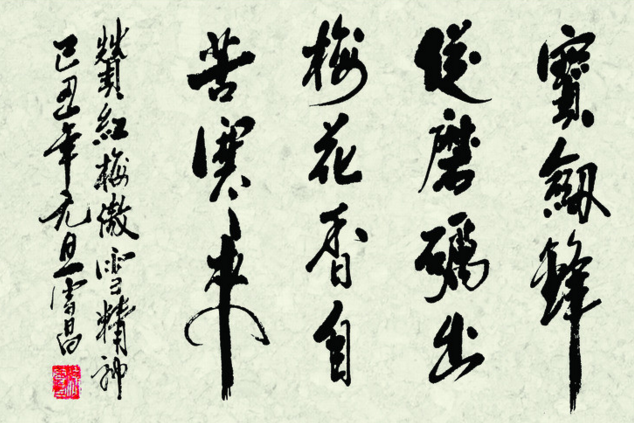 寶劍鋒
從磨礪出
梅花香自
苦寒來
贊紅梅傲雪精神
己丑年元旦雪昌